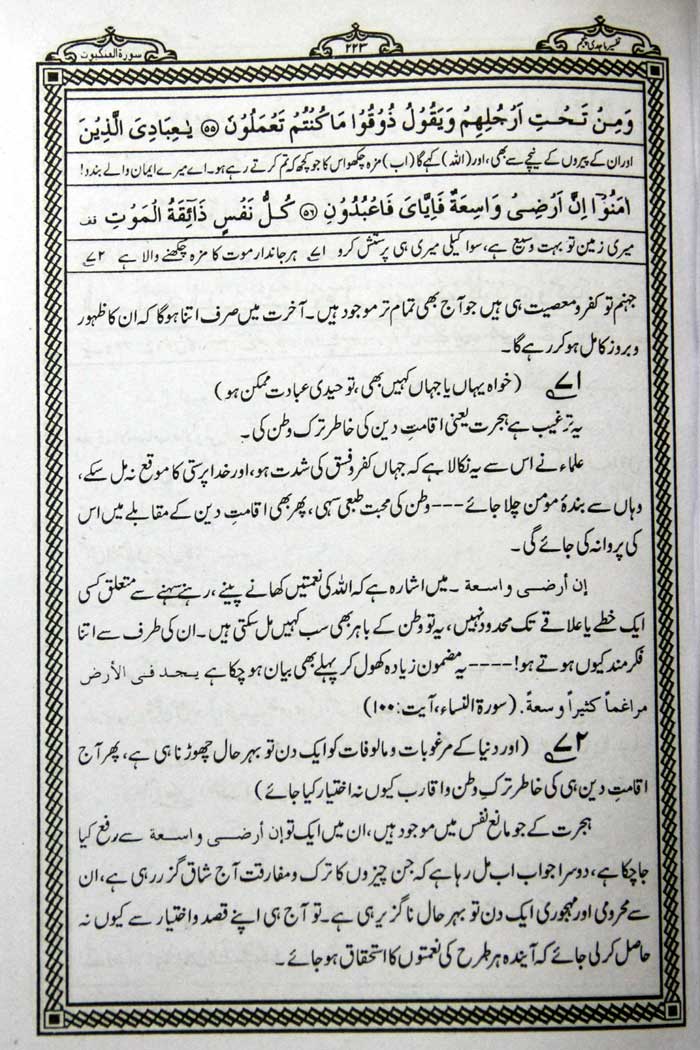 تفسیر ماجدی پنجم
۲۲۳
سورۃ العنکبوت
وَمِنْ تَحْتِ اَرْجُلِهِمْ وَيَقُوْلُ ذُوْقُوْا مَا كُنْتُمْ تَعْمَلُوْنَ ۵۵ يٰعِبَادِىَ الَّذِيْنَ
اور ان کے پیروں کے نیچے سے بھی، اور (اللہ) کہے گا (اب) مزہ چکھو اس کا جو کچھ کہ تم کرتے رہے ہو۔ اے میرے ایمان والے بندو!
اٰمَنُوْۤا اِنَّ اَرْضِىْ وَاسِعَةٌ فَاِيَّاىَ فَاعْبُدُوْنِ ۵۶ كُلُّ نَفْسٍ ذَآئِقَةُ الْمَوْتِ قف
میری زمین تو بہت وسیع ہے، سو اکیلی میری ہی پرستش کرو ۷۱ ہر جاندار موت کا مزہ چکھنے والا ہے ۷۲
جہنم تو کفر و معصیت ہی ہیں جو آج بھی تمام تر موجود ہیں۔ آخرت میں صرف اتنا ہوگا کہ ان کا ظہور
و بروز کامل ہو کر رہے گا۔
۷۱ (خواہ یہاں یا جہاں کہیں بھی، توحیدی عبادت ممکن ہو)
یہ ترغیب ہے ہجرت یعنی اقامتِ دین کی خاطر ترک وطن کی۔
علماء نے اس سے یہ نکالا ہے کہ جہاں کفر و فسق کی شدت ہو، اور خدا پرستی کا موقع نہ مل سکے،
وہاں سے بندۂ مؤمن چلا جائے---وطن کی محبت طبعی سہی، پھر بھی اقامتِ دین کے مقابلے میں اس
کی پروا نہ کی جائے گی۔
إن أرضى واسعة ۔ میں اشارہ ہے کہ اللہ کی نعمتیں کھانے پینے، رہنے سہنے سے متعلق کسی
ایک خطے یا علاقے تک محدود نہیں، یہ تو وطن کے باہر بھی سب کہیں مل سکتی ہیں۔ ان کی طرف سے اتنا
فکر مند کیوں ہوتے ہو!----یہ مضمون زیادہ کھول کر پہلے بھی بیان ہو چکا ہے يجد فى الأرض
مراغماً كثيراً وسعة. (سورۃ النساء، آیت: ۱۰۰)
۷۲ (اور دنیا کے مرغوبات و مالوفات کو ایک دن تو بہر حال چھوڑنا ہی ہے، پھر آج
اقامتِ دین ہی کی خاطر ترکِ وطن و اقارب کیوں نہ اختیار کیا جائے)
ہجرت کے جو مانع نفس میں موجود ہیں، ان میں ایک تو إن أرضى واسعة سے رفع کیا
جا چکا ہے، دوسرا جواب اب مل رہا ہے کہ جن چیزوں کا ترک و مفارقت آج شاق گزر رہی ہے، ان
سے محرومی اور مہجوری ایک دن تو بہر حال ناگزیر ہی ہے۔ تو آج ہی اپنے قصد و اختیار سے کیوں نہ
حاصل کر لی جائے کہ آیندہ ہر طرح کی نعمتوں کا استحقاق ہو جائے۔